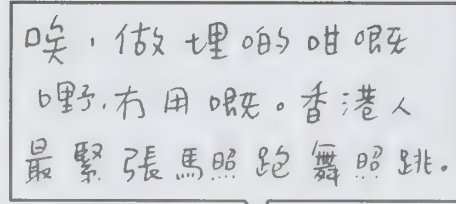 唉，做埋啲咁嘅
嘢，冇用嘅。香港人
最緊張馬照跑舞照跳。